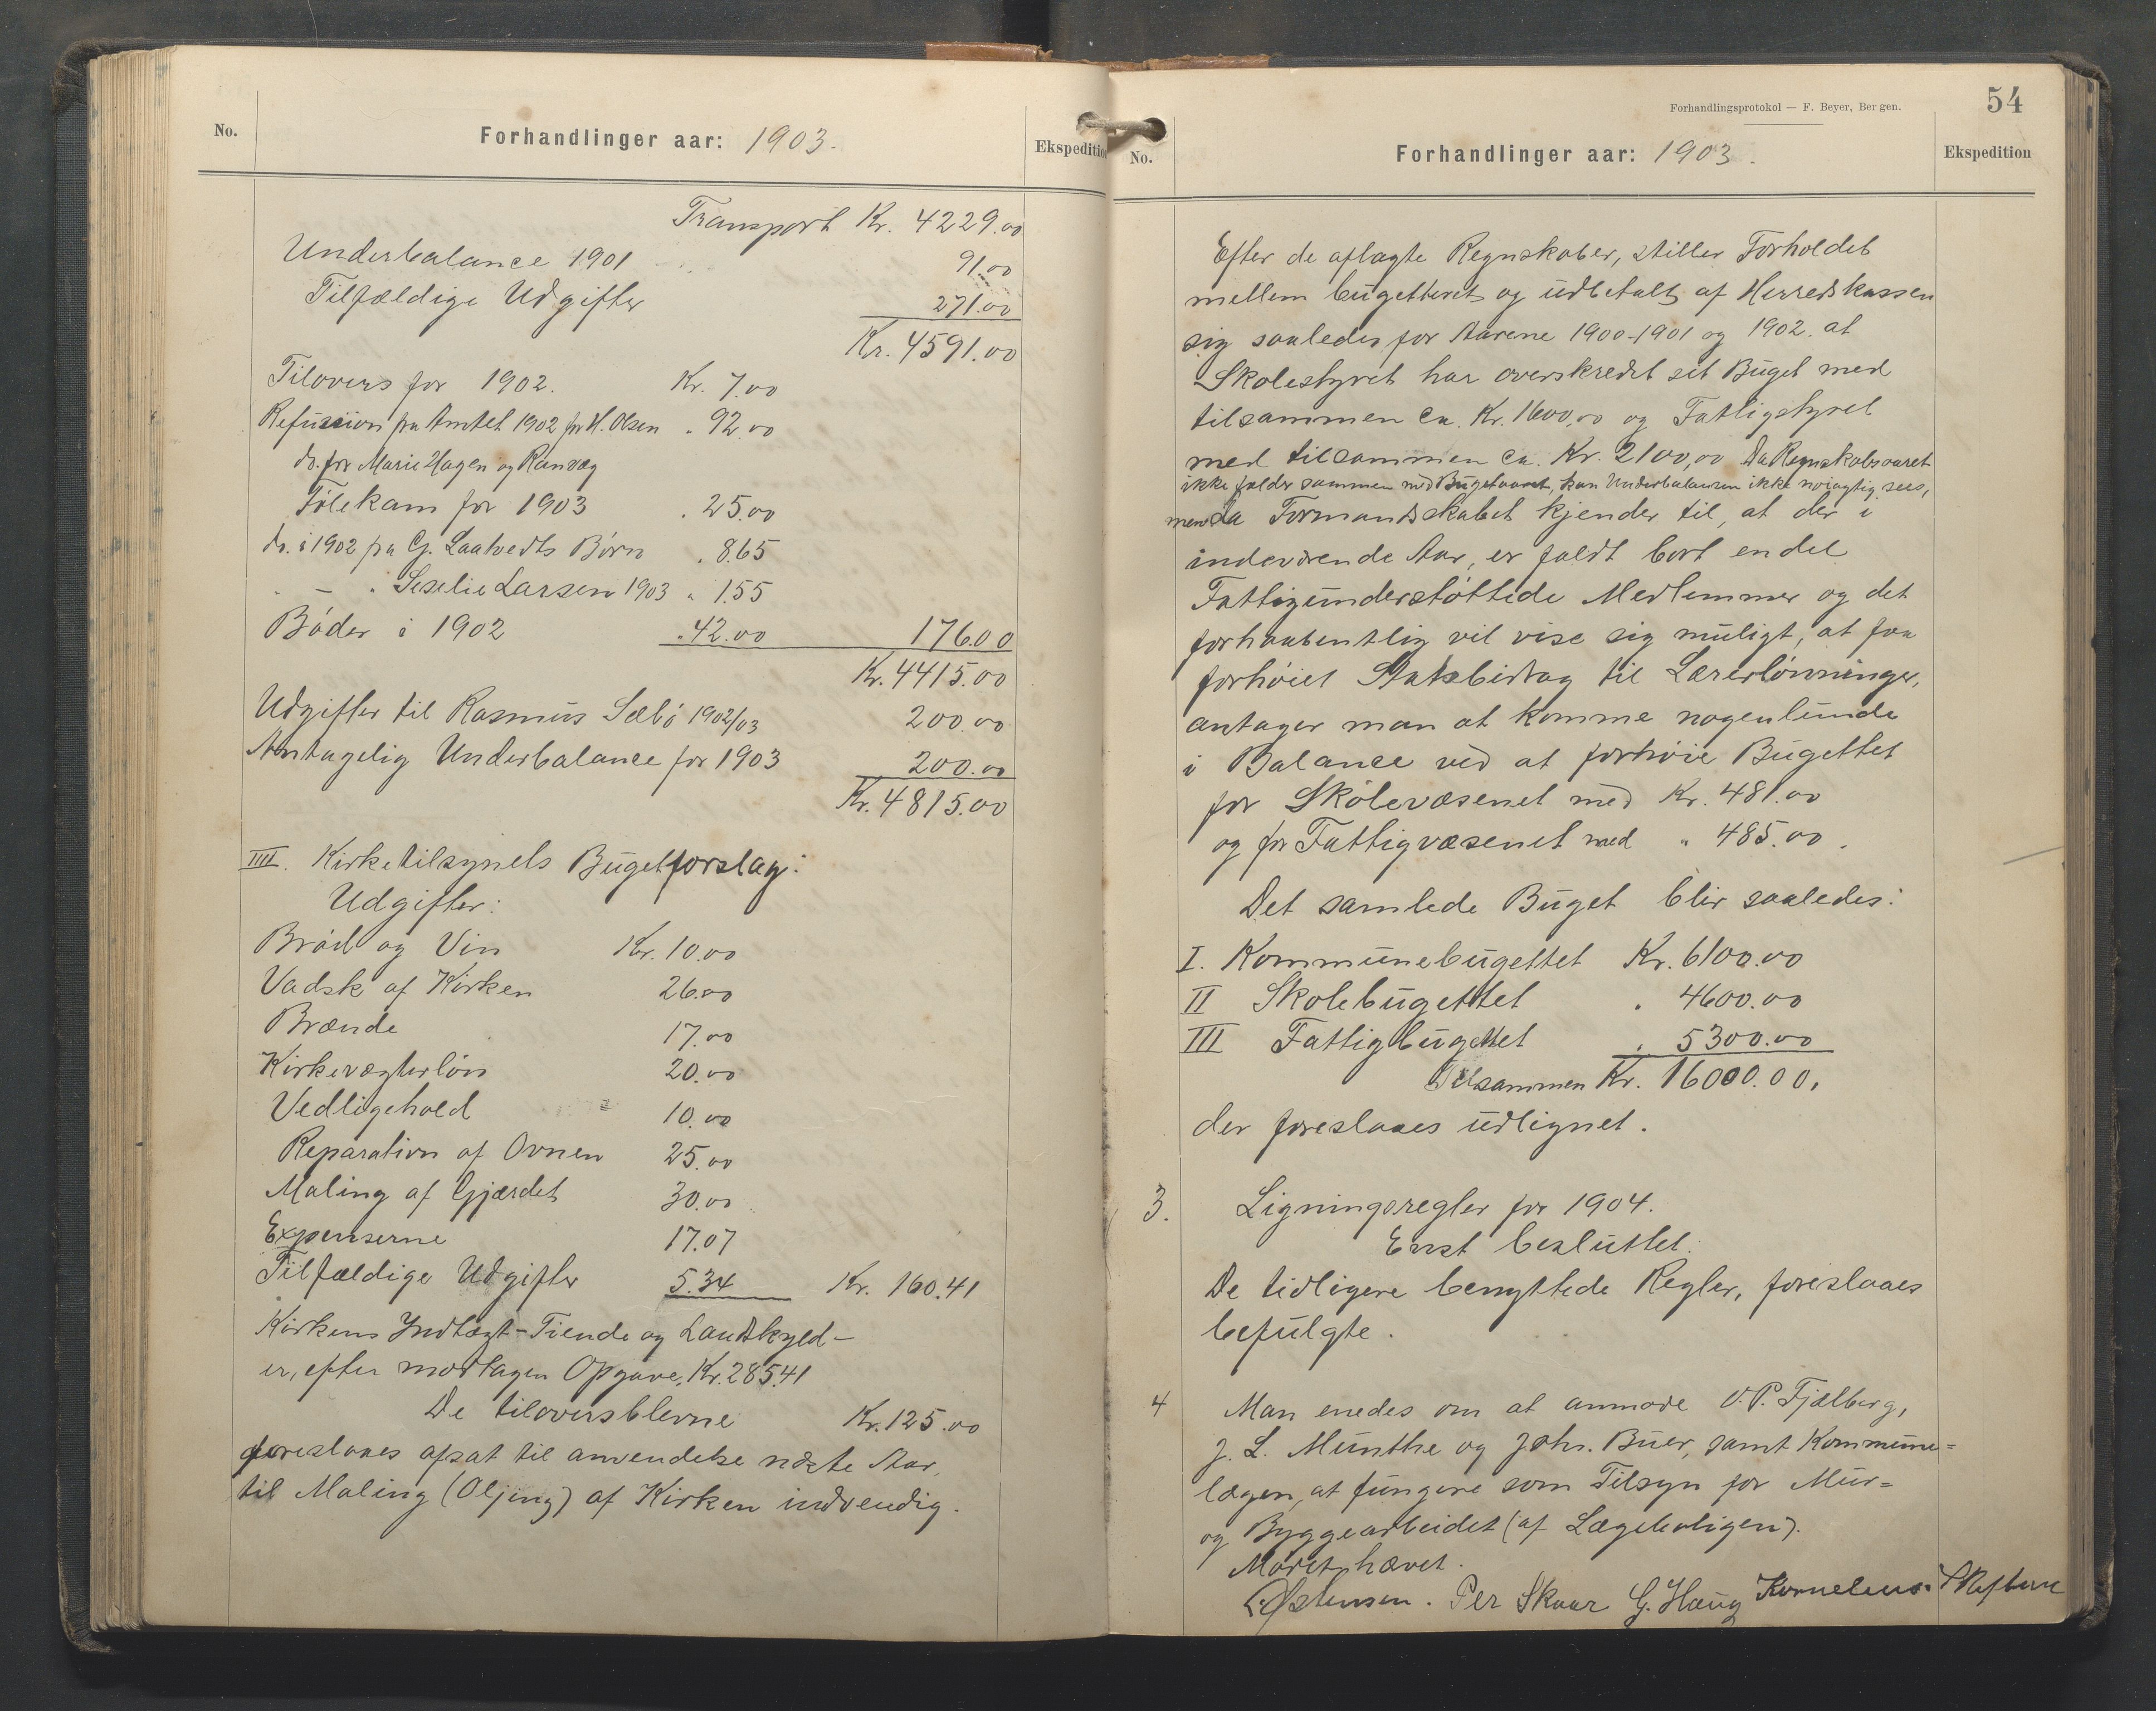 No.
Forhandlinger aar: 1903.
Ekspedition
Transport Kr. 4229.00
Underbalance 1901 91.00
Tilfældige Udgifter 271.00
Kr. 4591.00
Tilovers for 1902. Kr. 7.00
Refusion fra Amtet 1902 for H. Olsen " 92.00
do. for Marie Hagen og Ranvæg
Følekam for 1903 " 25.00
do. i 1902 fra G. Laatvedts Børn " 8.65
" – " Seselie Larsen 1903 " 1.55
Bøder i 1902 " 42.00 176.00
Kr. 4415.00
Udgifter til Rasmus Sæbø 1902/03 200.00
Antagelig Underbalance for 1903 200.00
Kr. 4815.00
IIII. Kirketilsynets Bugetforslag:
Udgifter:
Brød og Vin Kr. 10.00
Vadsk af Kirken 26.00
Brænde 17.00
Kirkevægterløn 20.00
Vedligehold 10.00
Reparation af Ovnen 25.00
Maling af Gjærdet 30.00
Expenserne 17.07
Tilfældige Udgifter 5.34 Kr. 160.41
Kirkens Indtægt - Tiende og Landskyld-
er, efter modtagen Opgave, Kr. 285.41
De tiloversblevne Kr. 125.00
foreslaaes afsat til anvendelse næste Aar,
til Maling (Oljing) af Kirken indvendig.
Forhandlingsprotokol — F. Beyer, Bergen.
54
No.
Forhandlinger aar: 1903.
Ekspedition
Efter de aflagte Regnskaber, stiller Forholdet
mellem bugetteret og udbetalt af Herredskassen
sig saaledes for Aarene 1900-1901 og 1902. at
Skolestyret har overskredet sit Buget med
tilsammen ca. Kr. 1600,00 og Fattigstyret
med tilsammen ca. Kr. 2100,00 Da Regnskabsaaret
ikke falder sammen med Bugetaaret, kan Underbalancen ikke nøiagtig sees,
men da Formandskabet kjender til, at der i
indeværende Aar, er faldt bort endel
Fattigunderstøttede Medlemmer og det
forhaabentlig vil vise sig muligt, at faa
forhøiet Statsbidrag til Lærerlønninger,
antager man at komme nogenlunde
i Balance ved at forhøie Bugettet
for Skolevæsenet med Kr. 481.00
og for Fattigvæsenet med " 485.00.
Det samlede Buget blir saaledes:
I. Kommunebugettet Kr. 6100.00
II Skolebugettet " 4600.00
III Fattigbugettet " 5300.00
Tilsammen Kr. 16000.00,
der foreslaaes udlignet.
3. Ligningsregler for 1904.
Enst besluttet:
De tidligere benyttede Regler, foreslaaes
befulgte.
4 Man enedes om at anmode O. P. Fjelberg,
J. L. Munthe og Johs. Buer, samt Kommune=
lægen, at fungere som Tilsyn for Mur=
og Byggearbeidet (af Lægeboligen).
Mødet hævet.
L. Østensen. Per Skaar G. Haug Kornelius